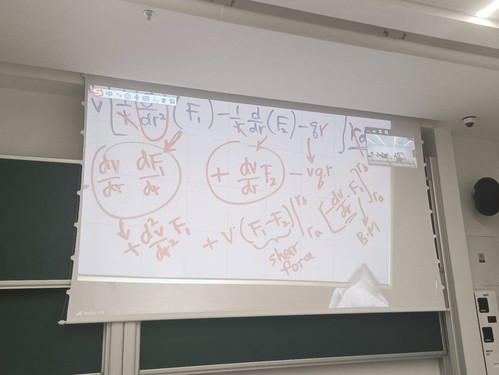 v [ 1/r d²/dr² (F₁) - 1/r d/dr (F₂) - qr ] rd
dv/dr dF₁/dr + dv/dr F₂ - vqr
+ d²v/dr² F₁ + v (F₁-F₂) |ʳᵇ ᵣₐ [-dv/dr F₁]ʳᵇ ᵣₐ
shear
force
B.M